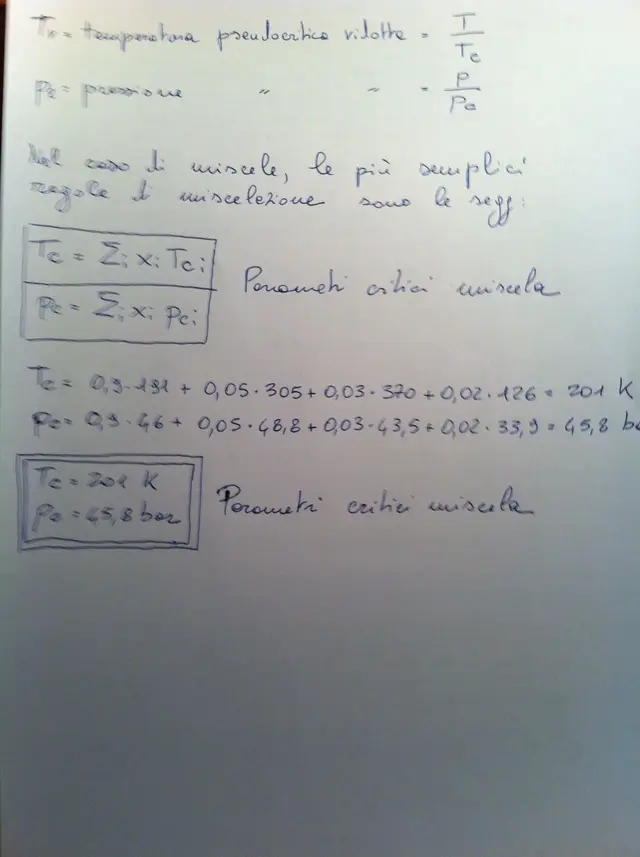 Tr = temperatura pseudocritica ridotta = T/Tc
pr = pressione " " = p/pc
Nel caso di miscele, le più semplici
regole di miscelazione sono le segg:
Tc = Σi xi Tci
pc = Σi xi pci
Parametri critici miscela
Tc = 0,9·191 + 0,05·305 + 0,03·370 + 0,02·126 = 201 K
pc = 0,9·46 + 0,05·48,8 + 0,03·43,5 + 0,02·33,9 = 45,8 ba
Tc = 201 K
pc = 45,8 bar
Parametri critici miscela